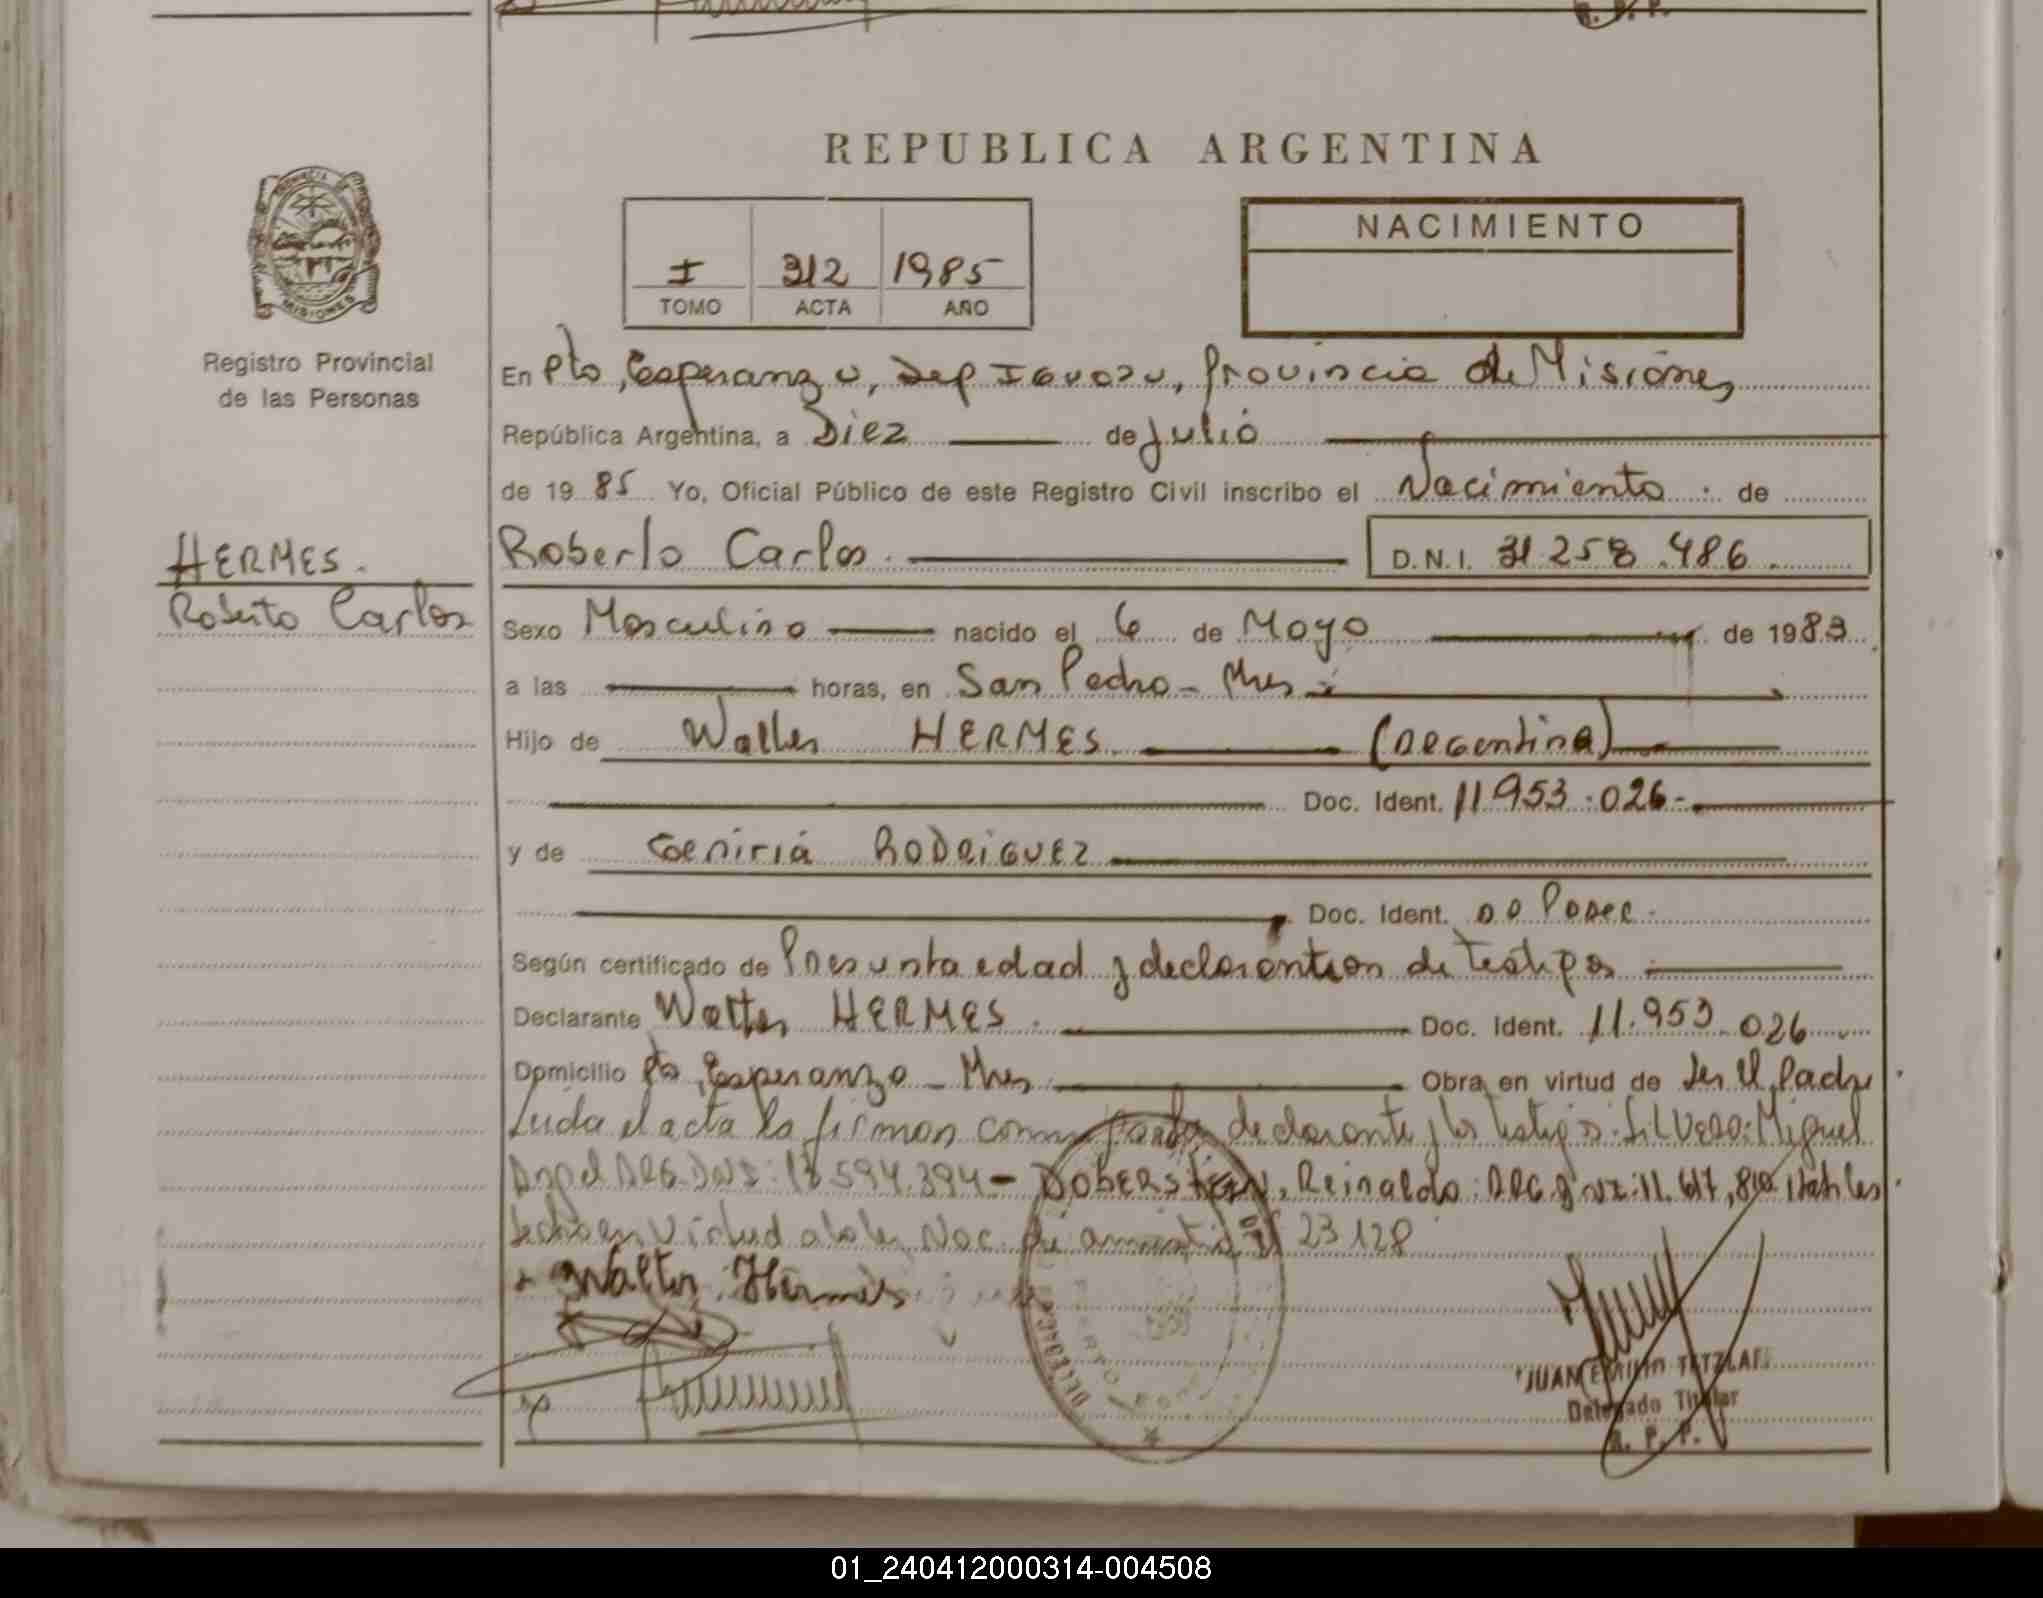 REPUBLICA ARGENTINA
PROVINCIA DE
MISIONES
Registro Provincial
de las Personas
I 312 1985
TOMO ACTA AÑO
NACIMIENTO
En Pto, Esperanza, Dep Iguazu, Provincia de Misiones
República Argentina, a Diez de Julio
de 1985 Yo, Oficial Público de este Registro Civil inscribo el Nacimiento de
HERMES.
Roberto Carlos
Roberto Carlos. D.N.I. 31.258.486
Sexo Masculino nacido el 6 de Mayo de 1983
a las horas, en San Pedro - Mnes
Hijo de Walter HERMES (Argentina)
Doc. Ident. 11.953.026-
y de RODRIGUEZ
Doc. Ident. no Posee.
Según certificado de Presunta edad y declaración de Testigos
Declarante Walter HERMES. Doc. Ident. 11.953.026
Domicilio Pto, Esperanza - Mnes Obra en virtud de Ser el Padre
Leida el acta la firman declarante y los testigos: Miguel
DNI: 594.394 - DOBERSTEIN, Reinaldo: ARG DNI: 11.617,810
en virtud a la ley Nac. de amnistia Nº 23128
Walter Hermes
DELEGACION
JUAN EMILIO TETZLAF
Delegado Titular
R. P. P.
01_240412000314-004508